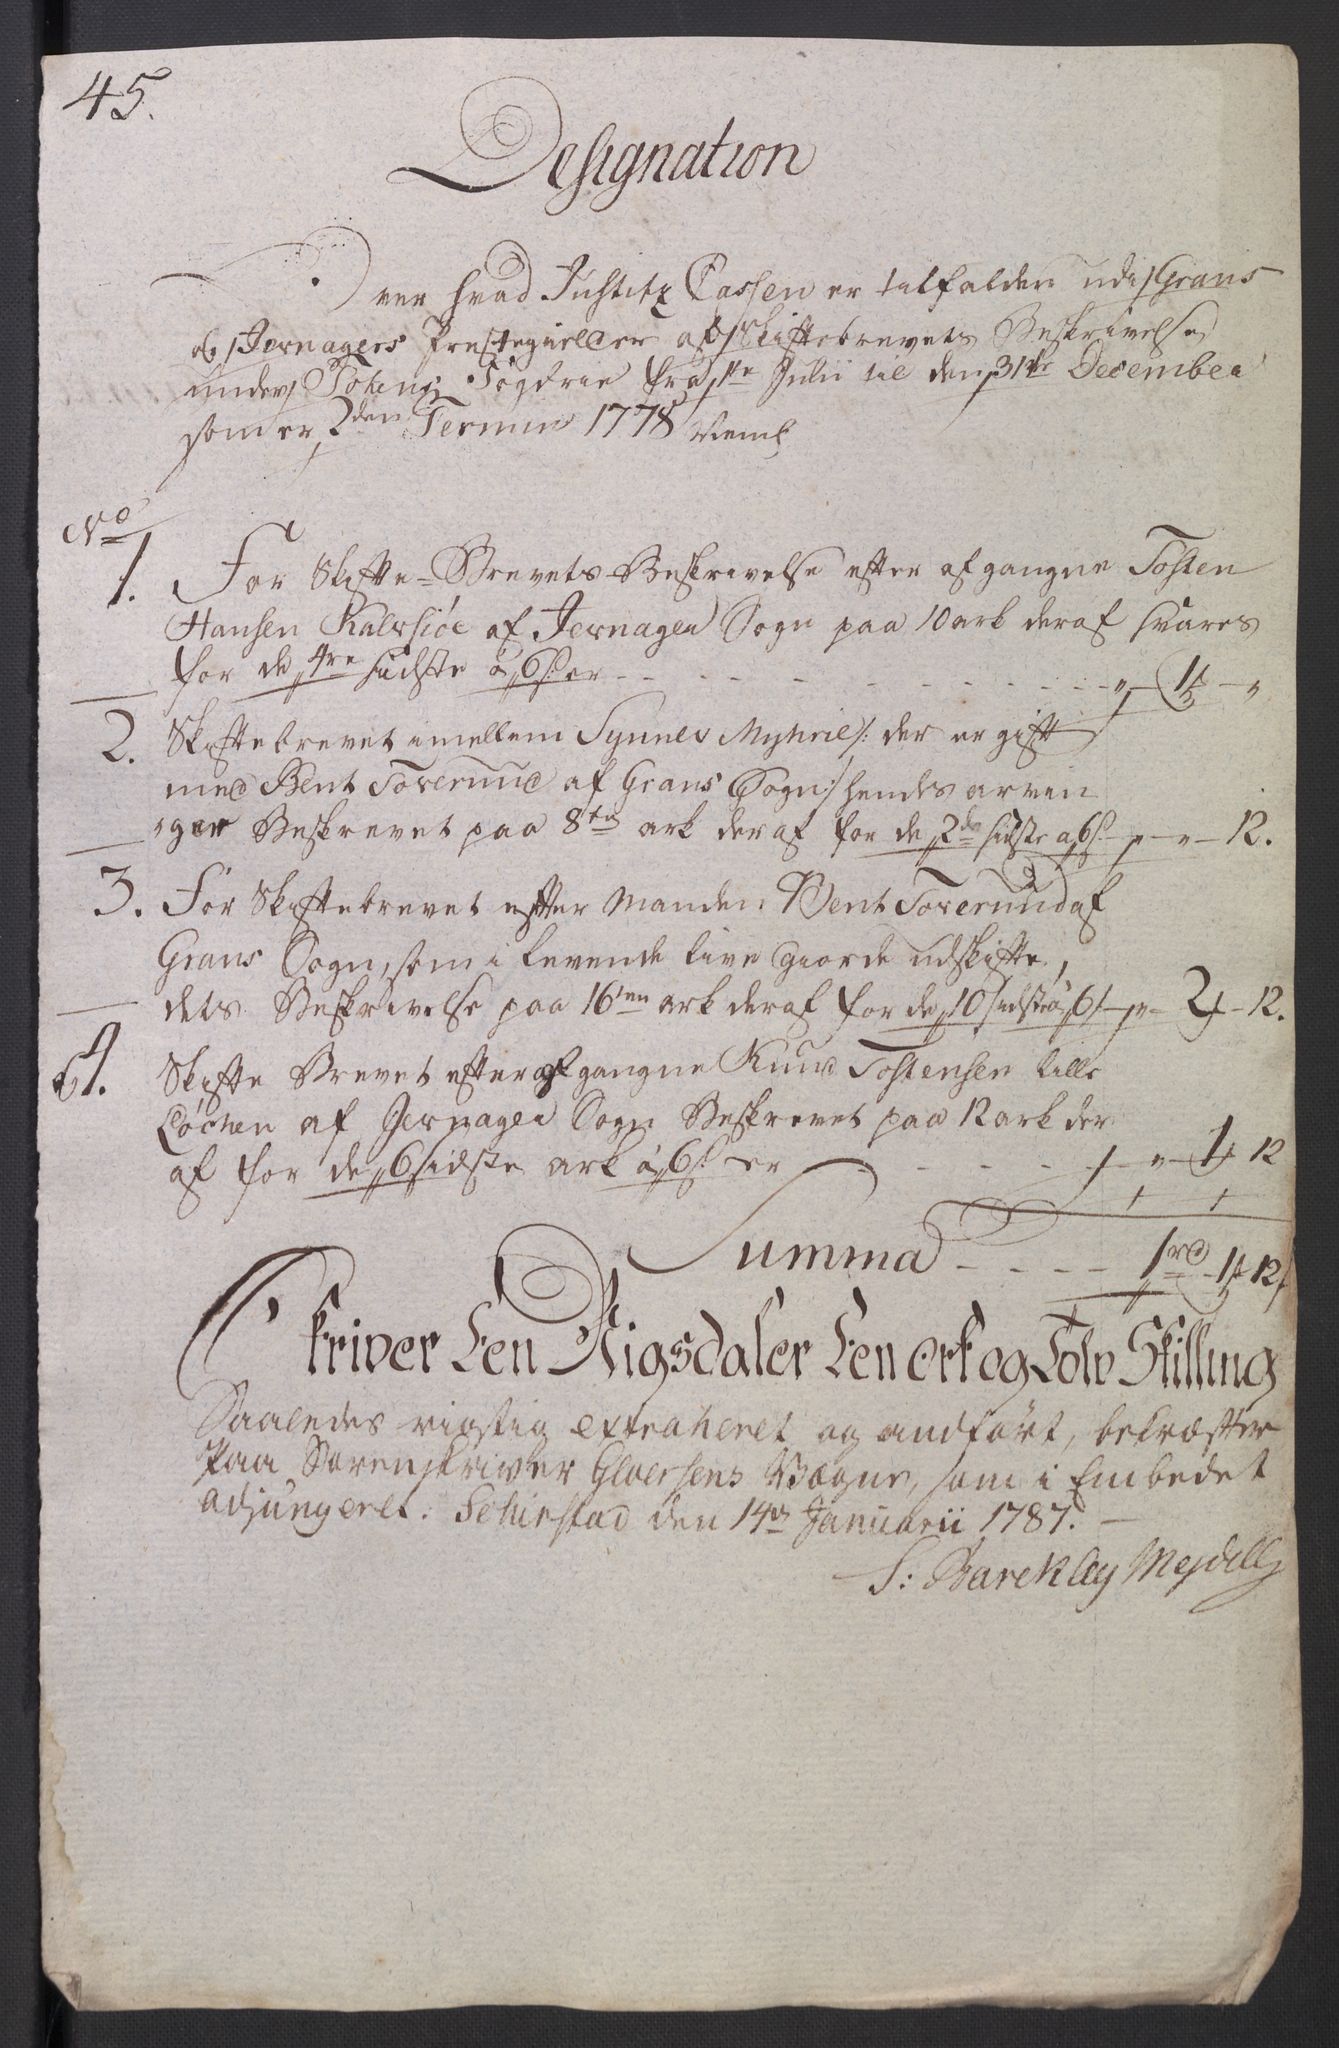 45.
Designation
Over hvad Justitz Cassen er tilfalden udi Grans
og Jevnagers Prestegielder af Skiftebrevets Beskrivelse
under Totens Fogderie fra 1te Julii til den 31te December
som er 2den Termin 1778 Neml
No
1. For Skifte-Brevets Beskrivelse efter afgangne Tosten
Hansen Kalvsiøe af Jevnager Sogn paa 10 ark deraf svares
for de 4re sidste á 6s. er - - - " - 1 - "
2. Skiftebrevet imellem Synnev Myhrie /: der er gift
med Bent Toverund af Grans Sogn :/ hendes arvin
ger Beskrevet paa 8te ark deraf for de 2de sidste a 6s. - " - " - 12.
3. For Skiftebrevet efter Manden Bent Toverund af
Grans Sogn, som i levende live giorde udskifte,
dets Beskrivelse paa 16ten ark deraf for de 10 sidste á 6s - " - 2 - 12.
4. Skifte Brevet efter afgangne Knud Tostensen lille
Løchen af Jevnager Sogn Beskrevet paa 12 ark der
af for de 6 sidste ark á 6s. er - - - " - 1 12
Summa - - - - 1rd - 1 12s
Skriver Een Rigsdaler Een ort og Tolv Skilling
Saaledes rigtig extraheret og andført, bekræfter
Paa Sorenskriver Gloersens Vægne, som i Embedet
adjungeret. Sehirstad den 14de Januarii 1787. -
S: Barckley Mejdell